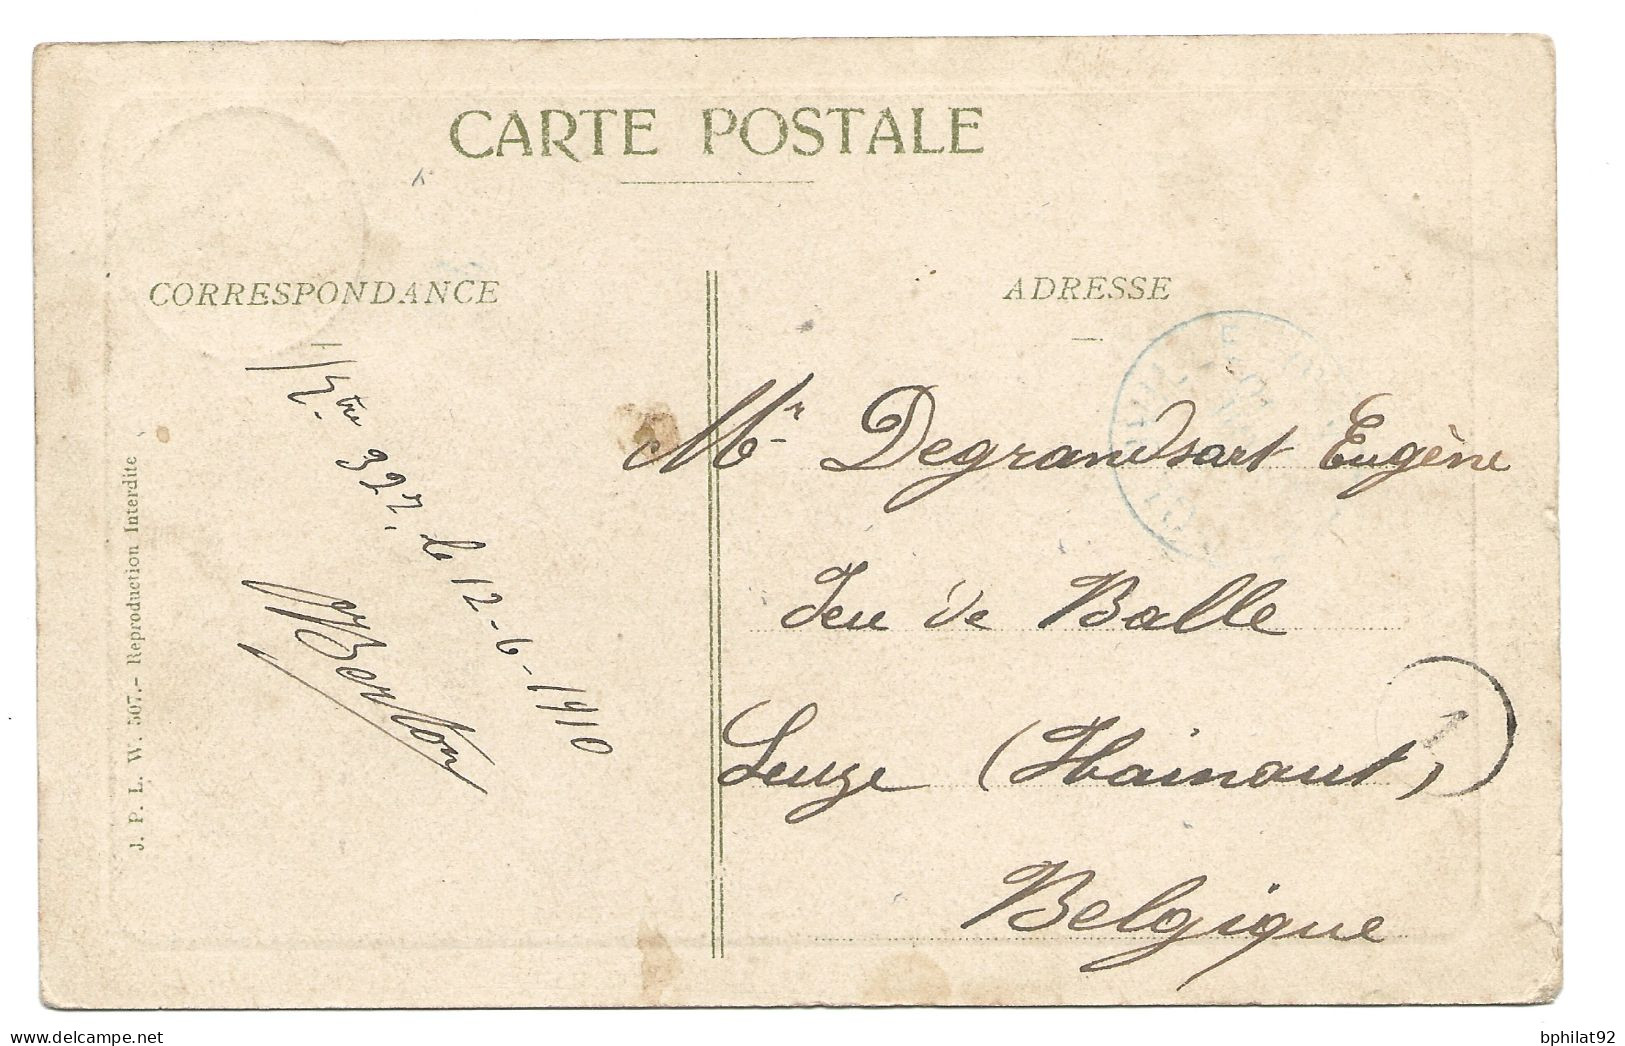 CARTE POSTALE
CORRESPONDANCE
ADRESSE
327. le 12-6-1910
Berlon
Mr Degrandsart Eugène
Jeu de Balle
Leuze (Hainaut)
Belgique
J. P. L. W. 507.- Reproduction Interdite
1
delcampe.net
bphilat92